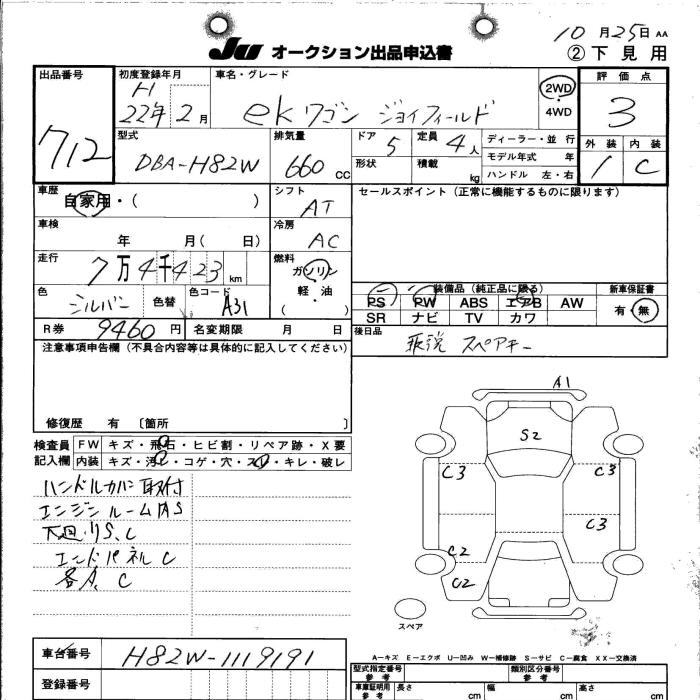 10月25日 AA
JU オークション出品申込書
②下見用
出品番号
712
初度登録年月
H 22年 2月
車名・グレード
ekワゴン ジョイフィールド
2WD・4WD
評価点
3
外装 内装
1 C
型式
DBA-H82W
排気量
660 CC
ドア 5
形状
定員 4人
積載 kg
ディーラー・並行
モデル年式 年
ハンドル 左・右
車歴
自家用・( )
シフト
AT
セールスポイント (正常に機能するものに限ります)
車検
年 月( 日)
冷房
AC
走行
7万4千423 km
燃料
ガソリン
軽・油
( )
色
シルバー
色替
色コード
A31
装備品 (純正品に限る)
PS PW ABS エアB AW
SR ナビ TV カワ
新車保証書
有・無
R券 9460円
名変期限 月 日
後日品
取説 スペアキー
注意事項申告欄 (不具合内容等は具体的に記入してください)
修復歴 有 〔箇所 〕
検査員記入欄
FW キズ・飛石・ヒビ割・リペア跡・X要
内装 キズ・汚レ・コゲ・穴・スレ・キレ・破レ
ハンドルカバー取付
エンジンルームAS
下廻りS.C
エンドパネルC
各A、C
A1
S2
C3
C3
C3
C2
C2
スペア
A-キズ E-エクボ U-凹み W-補修跡 S-サビ C-腐食 XX-交換済
車台番号
H82W-1119191
登録番号
型式指定番号
類別区分番号
車庫証明用参考
長さ cm
幅 cm
高さ cm